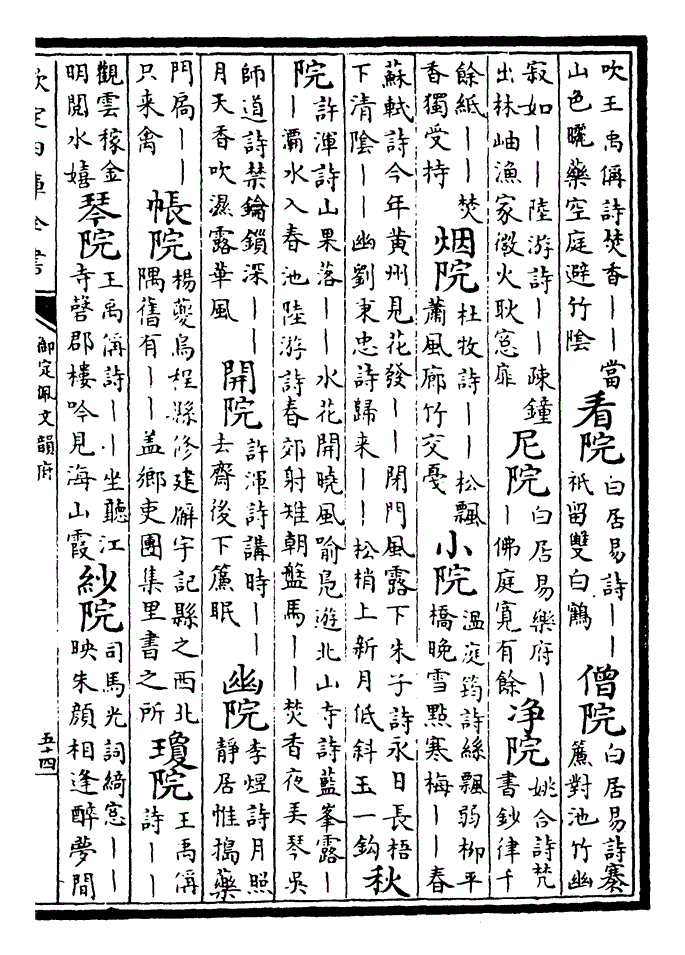 吹王禹偁詩焚香——當山色曬藥空庭避竹陰 看院 白居易詩——祇留雙白鶴 僧院 白居易詩褰簾對池竹幽
寂如——陸游詩——疎鐘出林岫漁家微火耿窓扉 尼院 白居易樂府——佛庭寛有餘 净院 姚合詩梵書鈔律千
餘紙——焚香獨受持 烟院 杜牧詩——松飄蕭風廊竹交戞 小院 温庭筠詩絲飄弱柳平橋晚雪㸃寒梅——春
蘇軾詩今年黄州見花發——閉門風露下朱子詩永日長梧下清陰——幽劉秉忠詩歸来——松梢上新月低斜玉一鈎 秋
院 許渾詩山果落——水花開曉風喻鳬遊北山寺詩藍峯露——灞水入春池陸游詩春郊射雉朝盤馬——焚香夜美琴吳
師道詩禁鑰鎖深——月天香吹濕露華風 開院 許渾詩講時——去齋後下簾眠 幽院 李煜詩月照静居惟搗藥
門扃——只来禽 帳院 楊夔烏程縣修建廨宇記縣之西北隅舊有——盖鄉吏團集里書之所 瓊院 王禹偁詩——
觀雲稼金明閲水嬉 琴院 王禹偁詩——坐聽江寺磬郡樓吟見海山霞 紗院 司馬光詞綺窓——映朱顔相逢醉夢間
欽定四庫全書
御定佩文韻府
五十四